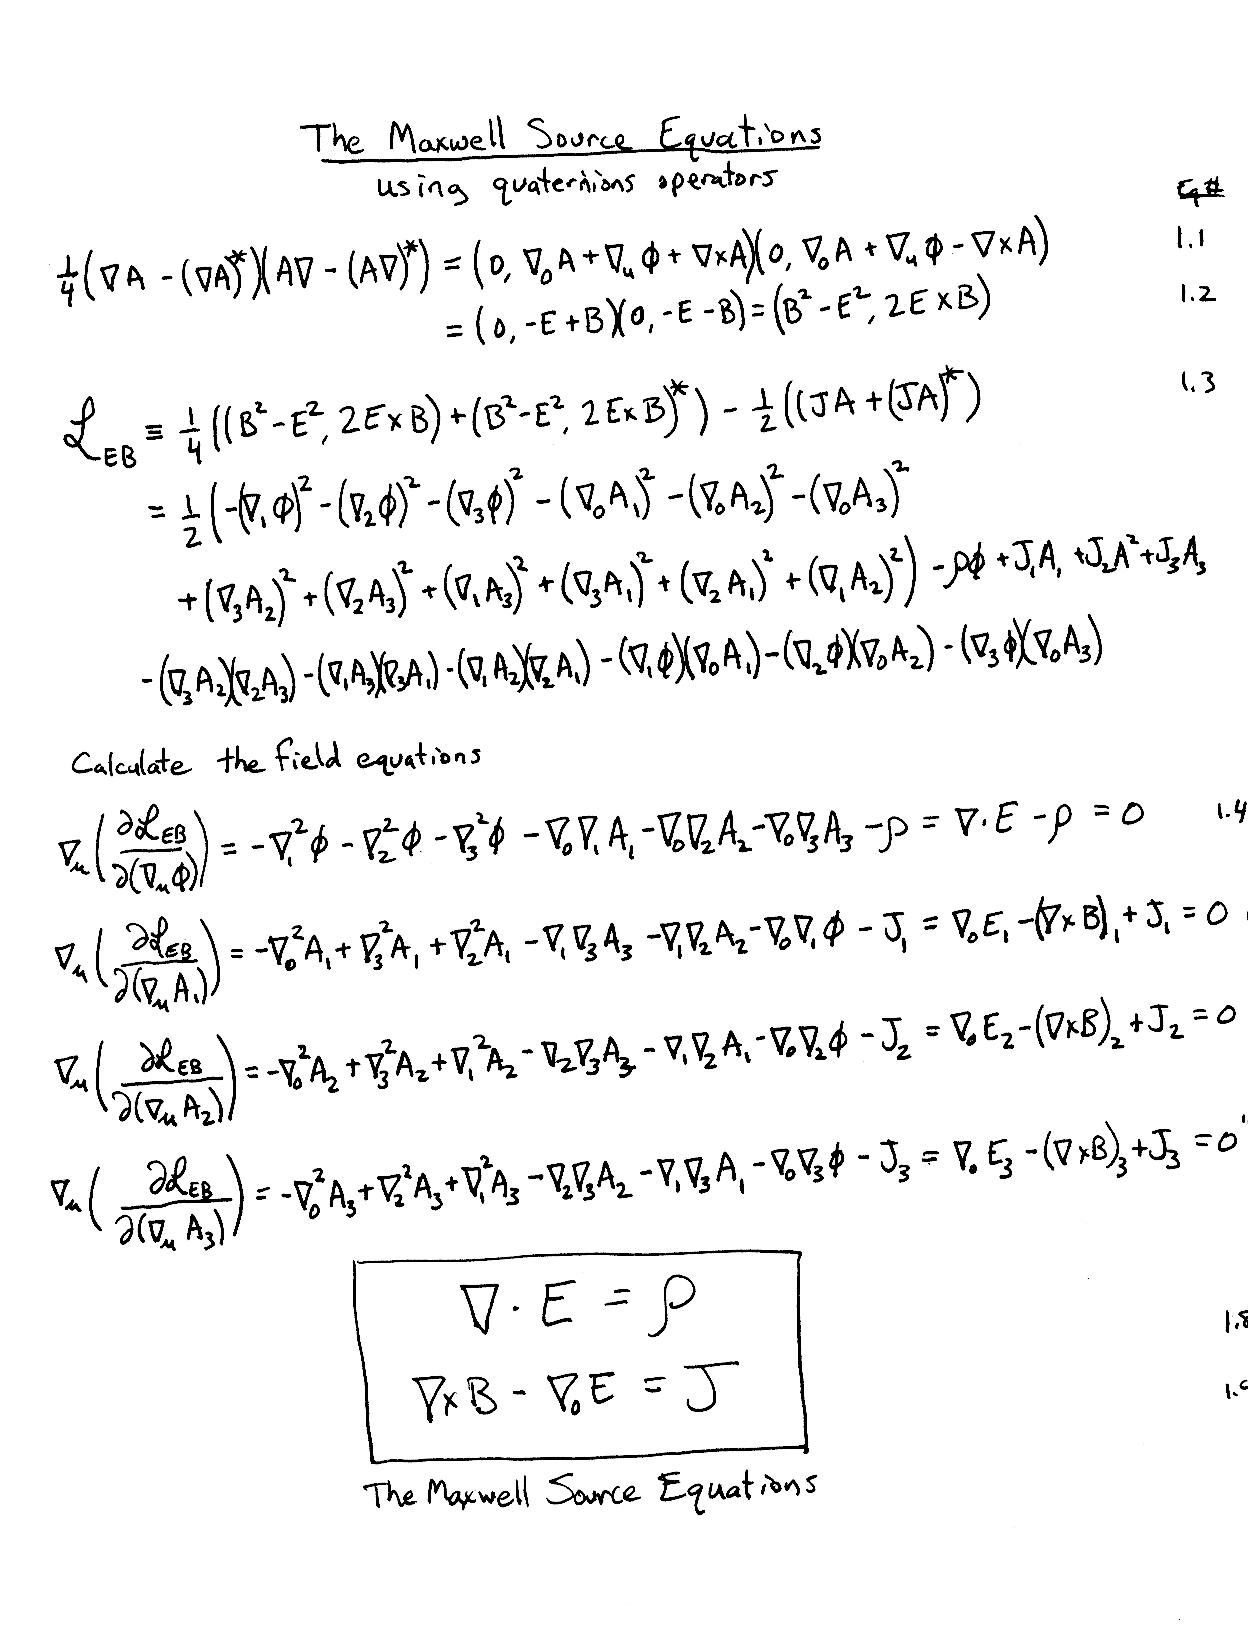 The Maxwell Source Equations
using quaternions operators
Eq#
¼(∇A - (∇A)*)(A∇ - (A∇)*) = (0, ∇₀A + ∇ᵤφ + ∇×A)(0, ∇₀A + ∇ᵤφ - ∇×A) 1.1
= (0, -E + B)(0, -E - B) = (B² - E², 2E×B) 1.2
ℒ_EB ≡ ¼((B² - E², 2E×B) + (B² - E², 2E×B)*) - ½((JA + (JA)*) 1.3
= ½(-(∇₁φ)² - (∇₂φ)² - (∇₃φ)² - (∇₀A₁)² - (∇₀A₂)² - (∇₀A₃)²
+ (∇₃A₂)² + (∇₂A₃)² + (∇₁A₃)² + (∇₃A₁)² + (∇₂A₁)² + (∇₁A₂)²) - ρφ + J₁A₁ + J₂A² + J₃A₃
- (∇₃A₂)(∇₂A₃) - (∇₁A₃)(∇₃A₁) - (∇₁A₂)(∇₂A₁) - (∇₁φ)(∇₀A₁) - (∇₂φ)(∇₀A₂) - (∇₃φ)(∇₀A₃)
Calculate the field equations
∇_μ(∂ℒ_EB/∂(∇_μφ)) = -∇₁²φ - ∇₂²φ - ∇₃²φ - ∇₀∇₁A₁ - ∇₀∇₂A₂ - ∇₀∇₃A₃ - ρ = ∇·E - ρ = 0 1.4
∇_μ(∂ℒ_EB/∂(∇_μA₁)) = -∇₀²A₁ + ∇₃²A₁ + ∇₂²A₁ - ∇₁∇₃A₃ - ∇₁∇₂A₂ - ∇₀∇₁φ - J₁ = ∇₀E₁ - (∇×B)₁ + J₁ = 0
∇_μ(∂ℒ_EB/∂(∇_μA₂)) = -∇₀²A₂ + ∇₃²A₂ + ∇₁²A₂ - ∇₂∇₃A₃ - ∇₁∇₂A₁ - ∇₀∇₂φ - J₂ = ∇₀E₂ - (∇×B)₂ + J₂ = 0
∇_μ(∂ℒ_EB/∂(∇_μA₃)) = -∇₀²A₃ + ∇₂²A₃ + ∇₁²A₃ - ∇₂∇₃A₂ - ∇₁∇₃A₁ - ∇₀∇₃φ - J₃ = ∇₀E₃ - (∇×B)₃ + J₃ = 0
∇·E = ρ 1.8
∇×B - ∇₀E = J
The Maxwell Source Equations